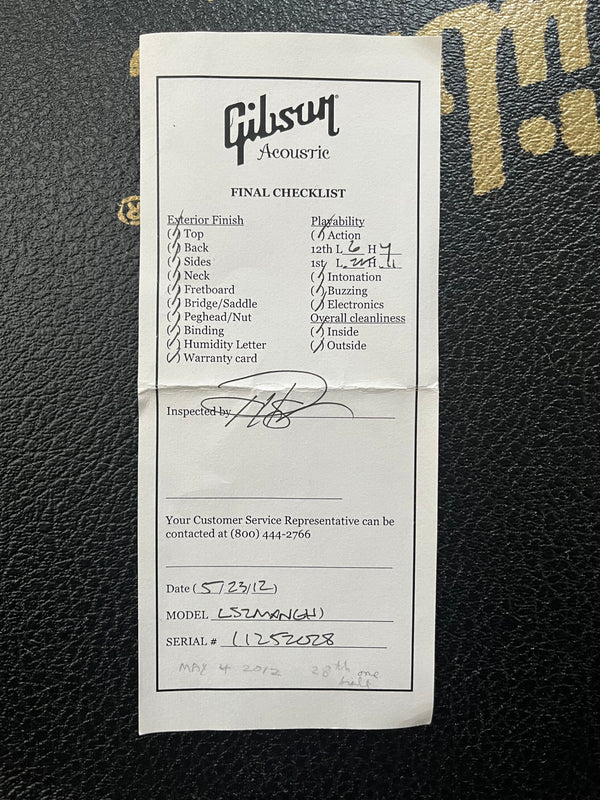 Gibson
Acoustic
FINAL CHECKLIST
Exterior Finish
(✓) Top
(✓) Back
(✓) Sides
(✓) Neck
(✓) Fretboard
(✓) Bridge/Saddle
(✓) Peghead/Nut
(✓) Binding
(✓) Humidity Letter
(✓) Warranty card
Playability
(✓) Action
12th L 6 H 4
1st L H
(✓) Intonation
(✓) Buzzing
(✓) Electronics
Overall cleanliness
(✓) Inside
(✓) Outside
Inspected by
Your Customer Service Representative can be
contacted at (800) 444-2766
Date (5/23/12)
MODEL LS2MANGH1
SERIAL # 11252028
MAY 4 2012 28th one
built